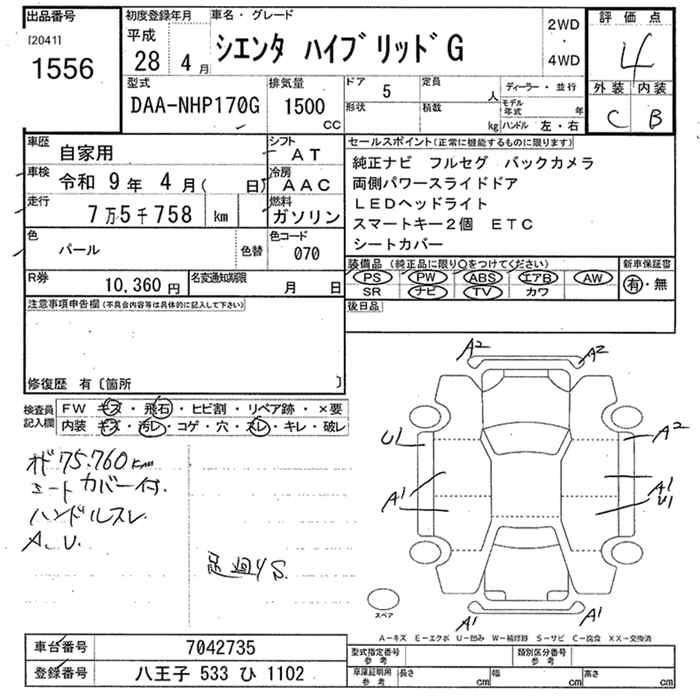 出品番号
[2041]
1556
初度登録年月
平成
28 4月
車名・グレード
シエンタ ハイブリッドG
2WD
・
4WD
評価点
4
外装 内装
C B
型式
DAA-NHP170G
排気量
1500
cc
ドア 5
定員 人
形状
積載 kg
ディーラー・並行
モデル年式 年
ハンドル 左・右
車歴
自家用
シフト
AT
車検 令和 9年 4月( 日)
冷房
AAC
走行
7万5千758 km
燃料
ガソリン
色
パール
色替
色コード
070
R券
10,360円
名変通知期限
月 日
セールスポイント(正常に機能するものに限ります)
純正ナビ フルセグ バックカメラ
両側パワースライドドア
LEDヘッドライト
スマートキー2個 ETC
シートカバー
装備品(純正品に限り○をつけてください)
PS PW ABS エアB AW
SR ナビ TV カワ
新車保証書
有・無
後日品
注意事項申告欄(不具合内容等は具体的に記入して下さい)
修復歴 有〔箇所 〕
検査員記入欄
FW キズ・飛石・ヒビ割・リペア跡・×要
内装 キズ・汚レ・コゲ・穴・スレ・キレ・破レ
オド75.760km
シートカバー付.
ハンドルスレ
A.U.
足廻りS.
A2
A2
U1
A2
A1
A1
A1
U1
A1
A1
スペア
A-キズ E-エクボ U-凹み W-補修跡 S-サビ C-腐食 XX-交換済
車台番号 7042735
登録番号 八王子 533 ひ 1102
型式指定番号
参考
類別区分番号
参考
車庫証明用
参考
長さ cm
幅 cm
高さ cm